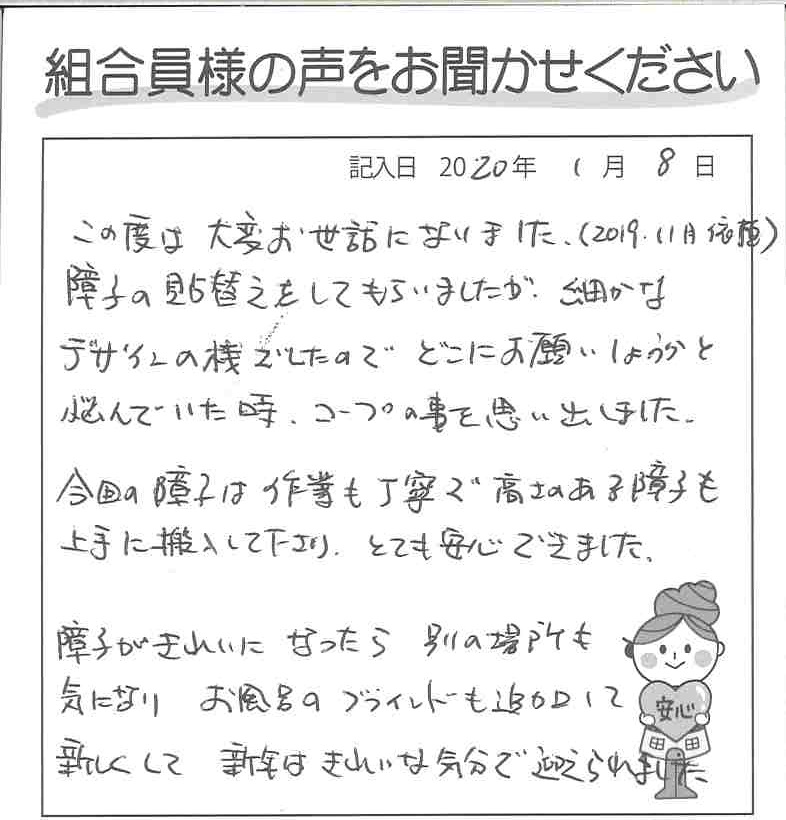 組合員様の声をお聞かせください
記入日 2020年 1月 8日
この度は 大変お世話になりました、(2019.11月依頼)
障子の貼替えをしてもらいましたが、細かな
デザインの桟でしたので どこにお願いしようかと
悩んでいた時、コープの事を思い出しました。
今回の障子は作業も丁寧で高さのある障子も
上手に搬入して下さり、とても安心できました、
障子がきれいに なったら 別の場所も
気になり お風呂のブラインドも追加して
新しくして 新年はきれいな気分で迎えられました
安心